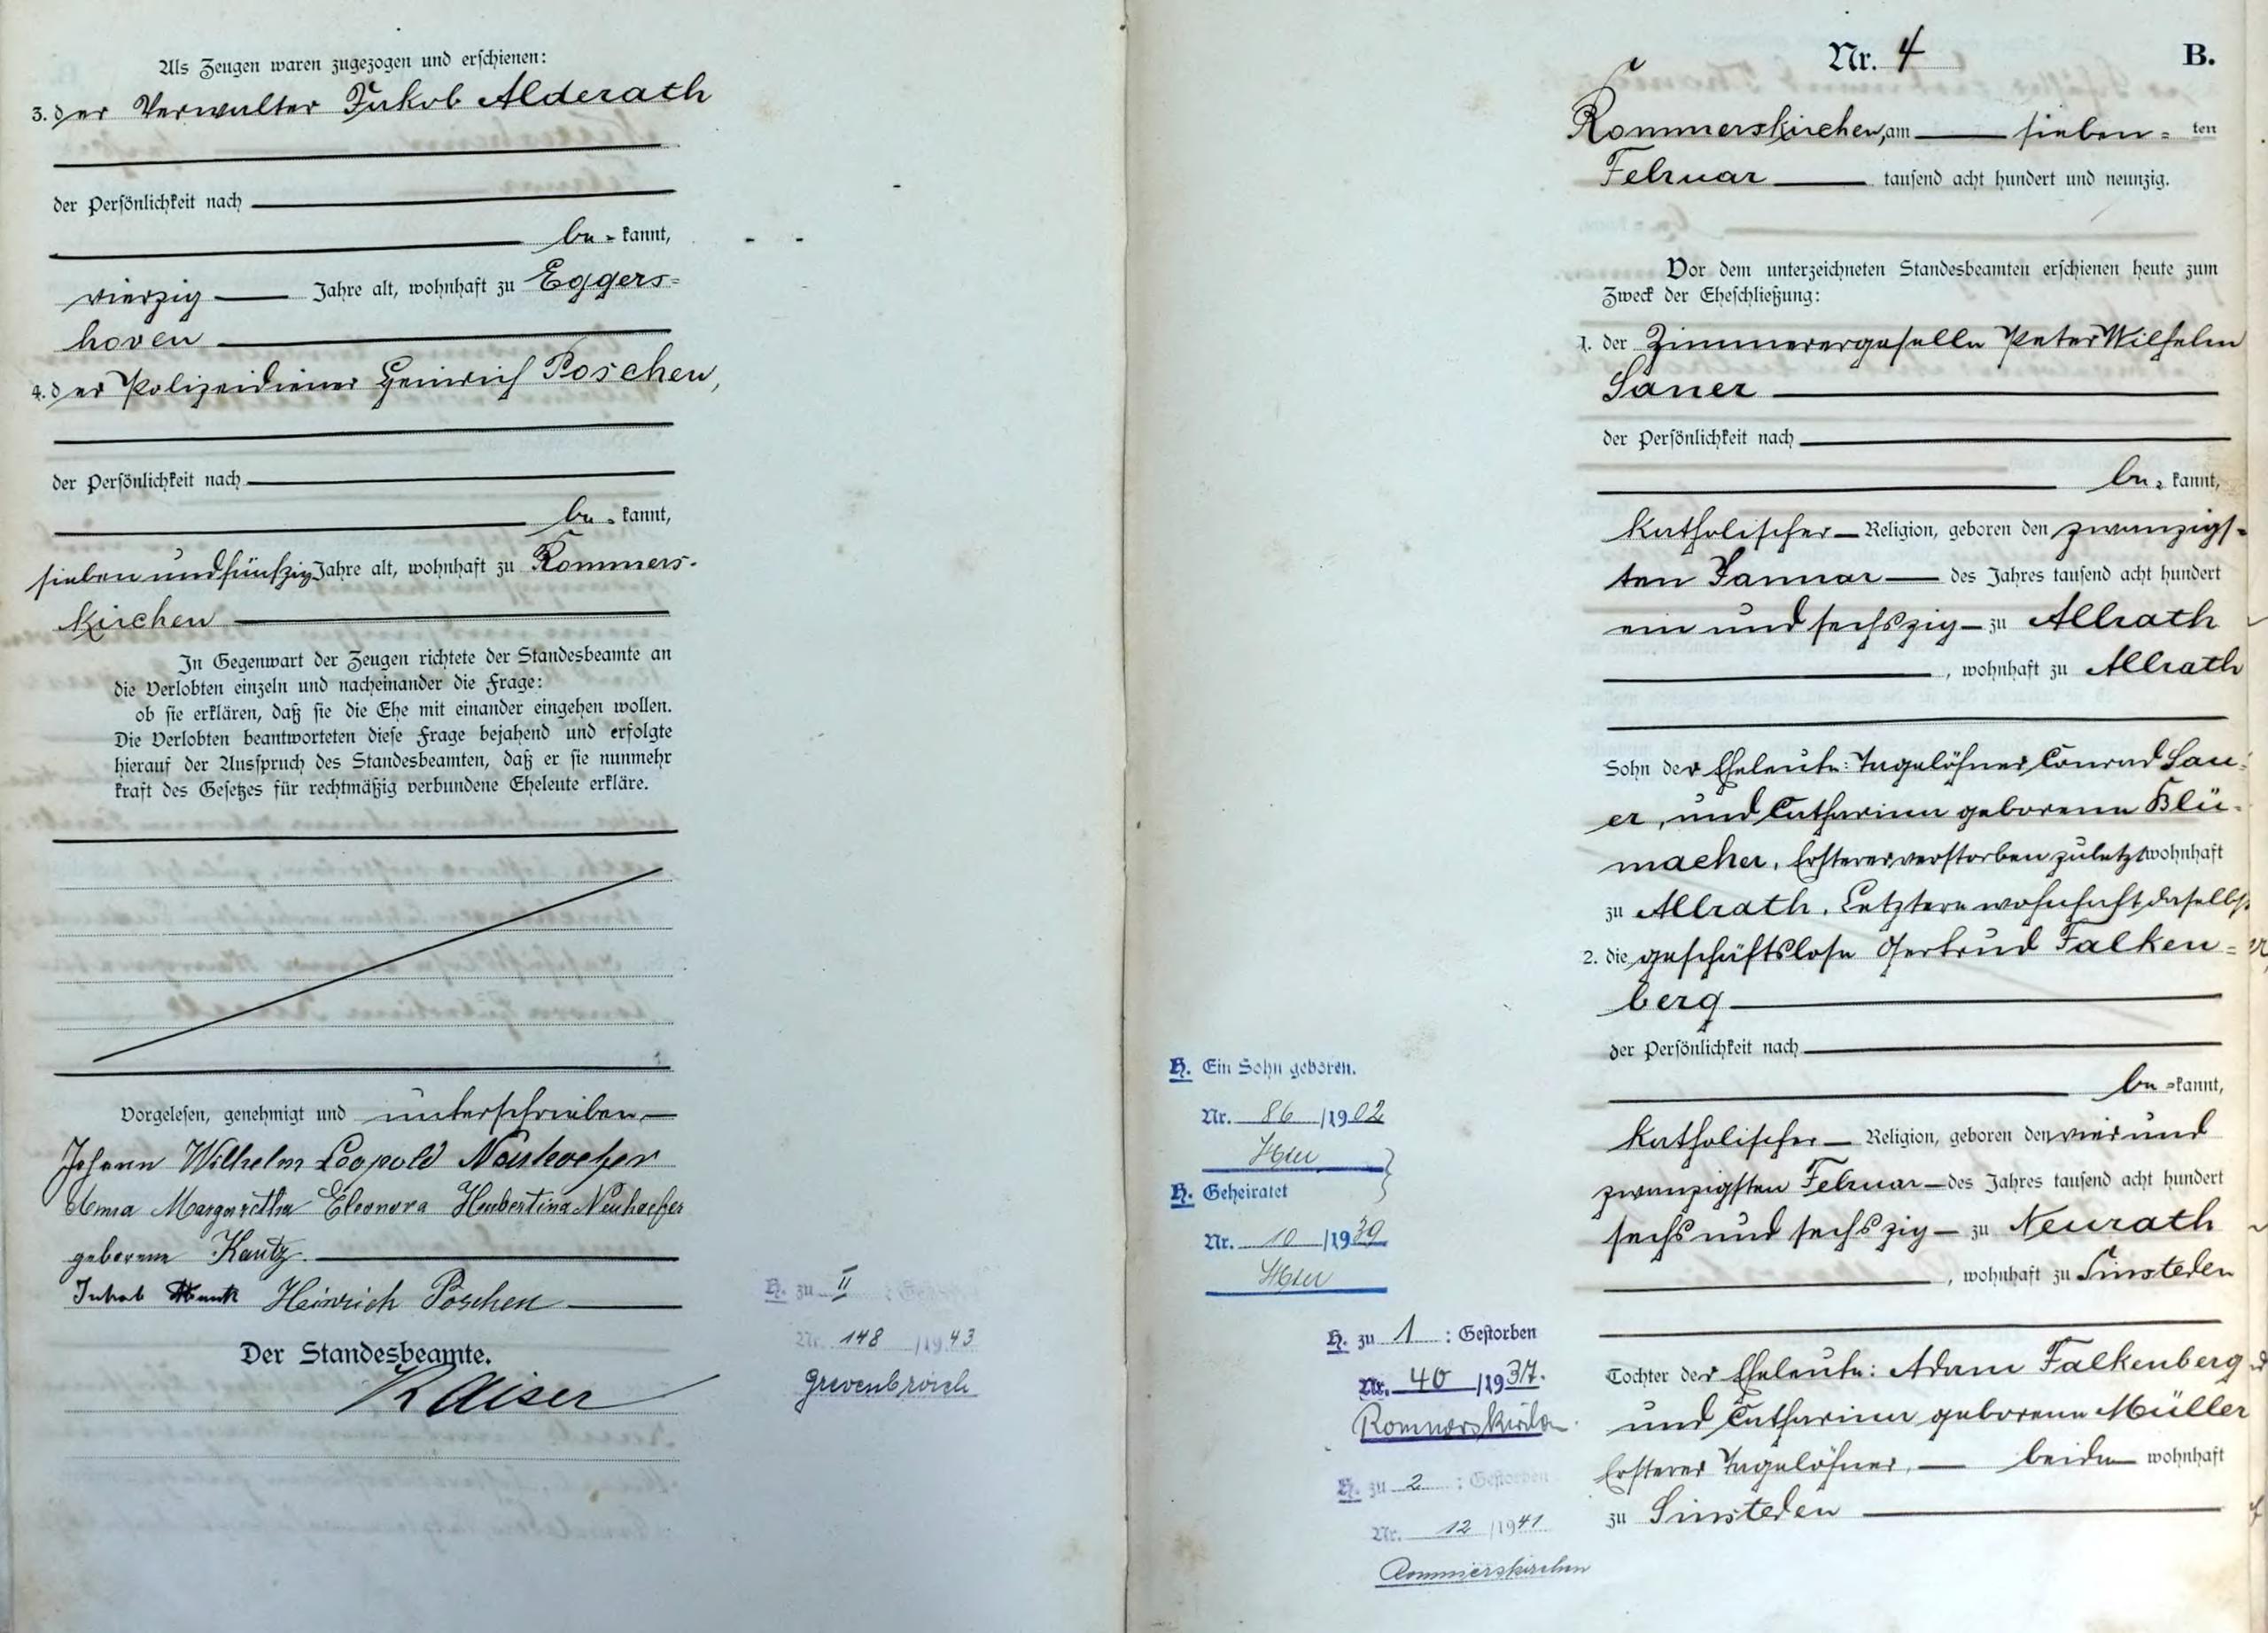 Als Zeugen waren zugezogen und erschienen:
3. der Verwalter Jakob Alderath
der Persönlichkeit nach
be - kannt,
vierzig Jahre alt, wohnhaft zu Eggers=
hoven
4. der Polizeidiener Heinrich Poschen,
der Persönlichkeit nach
be - kannt,
sieben und fünfzig Jahre alt, wohnhaft zu Rommers-
kirchen
In Gegenwart der Zeugen richtete der Standesbeamte an
die Verlobten einzeln und nacheinander die Frage:
ob sie erklären, daß sie die Ehe mit einander eingehen wollen.
Die Verlobten beantworteten diese Frage bejahend und erfolgte
hierauf der Ausspruch des Standesbeamten, daß er sie nunmehr
kraft des Gesetzes für rechtmäßig verbundene Eheleute erkläre.
Vorgelesen, genehmigt und unterschrieben
Johann Wilhelm Leopold Neuhoefer
Anna Margaretha Eleonora Hubertina Neuhoefer
geborene Kautz.
Jakob Heinrich Poschen
Der Standesbeamte.
Kaiser
H. zu II
Nr. 148 /1943
Grevenbroich
Nr. 4 B.
Rommerskirchen, am sieben= ten
Februar tausend acht hundert und neunzig.
Vor dem unterzeichneten Standesbeamten erschienen heute zum
Zweck der Eheschließung:
1. der Zimmerergeselle Peter Wilhelm
Sauer
der Persönlichkeit nach
be - kannt,
katholischer Religion, geboren den zwanzigs-
ten Januar des Jahres tausend acht hundert
ein und sechszig zu Allrath
, wohnhaft zu Allrath
Sohn der Eheleute: Tagelöhner Conrad Sau-
er, und Catharina geborene Blü-
macher, Ersterer verstorben zuletzt wohnhaft
zu Allrath, Letztere wohnhaft daselbst
2. die geschäftslose Gertrud Falken=
berg
der Persönlichkeit nach
be - kannt,
katholischer Religion, geboren den vier und
zwanzigsten Februar des Jahres tausend acht hundert
sechs und sechszig zu Neurath
, wohnhaft zu Sinsteden
Tochter der Eheleute: Adam Falkenberg
und Catharina geborene Müller
Ersterer Tagelöhner, beide wohnhaft
zu Sinsteden
H. Ein Sohn geboren.
Nr. 86 /1902
Hier
H. Geheiratet
Nr. 10 /1939
Hier
H. zu 1 : Gestorben
Nr. 40 /1937.
Rommerskirchen
H. zu 2 : Gestorben
Nr. 12 /1941
Rommerskirchen